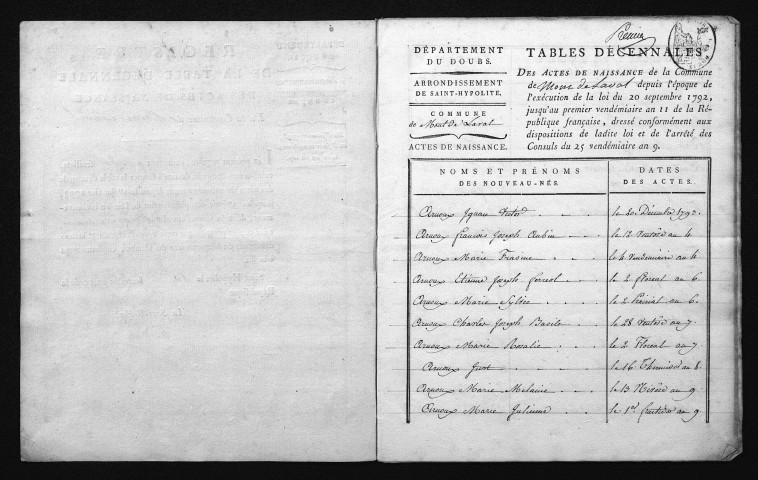 DÉPARTEMENT
DU DOUBS.
ARRONDISSEMENT
DE SAINT-HYPOLITE.
COMMUNE
de Mont de Laval
ACTES DE NAISSANCE.
TABLES DÉCENNALES
DES ACTES DE NAISSANCE de la Commune
de Mont de Laval depuis l'époque de
l'exécution de la loi du 20 septembre 1792,
jusqu'au premier vendémiaire an 11 de la Ré-
publique française, dressé conformément aux
dispositions de ladite loi et de l'arrêté des
Consuls du 25 vendémiaire an 9.
NOMS ET PRÉNOMS
DES NOUVEAU-NÉS.
DATES
DES ACTES.
Arnoux Ignace Victor le 20 Décembre 1792.
Arnoux François Joseph Aubin le 12 Ventôse an 4
Arnoux Marie le 4 Vendemiaire an 4
Arnoux Etienne Joseph Ferreol le 2 floreal an 6.
Arnoux Marie Sylvie le 2 Prairial an 6.
Arnoux Charles Joseph Basile le 28 Ventôse an 7.
Arnoux Marie Rosalie le 2 Floreal an 7.
Arnoux Just le 16 Thermidor an 8.
Arnoux Marie Melanie le 13 Nivôse an 9
Arnoux Marie Julienne le 1er fructidor an 9